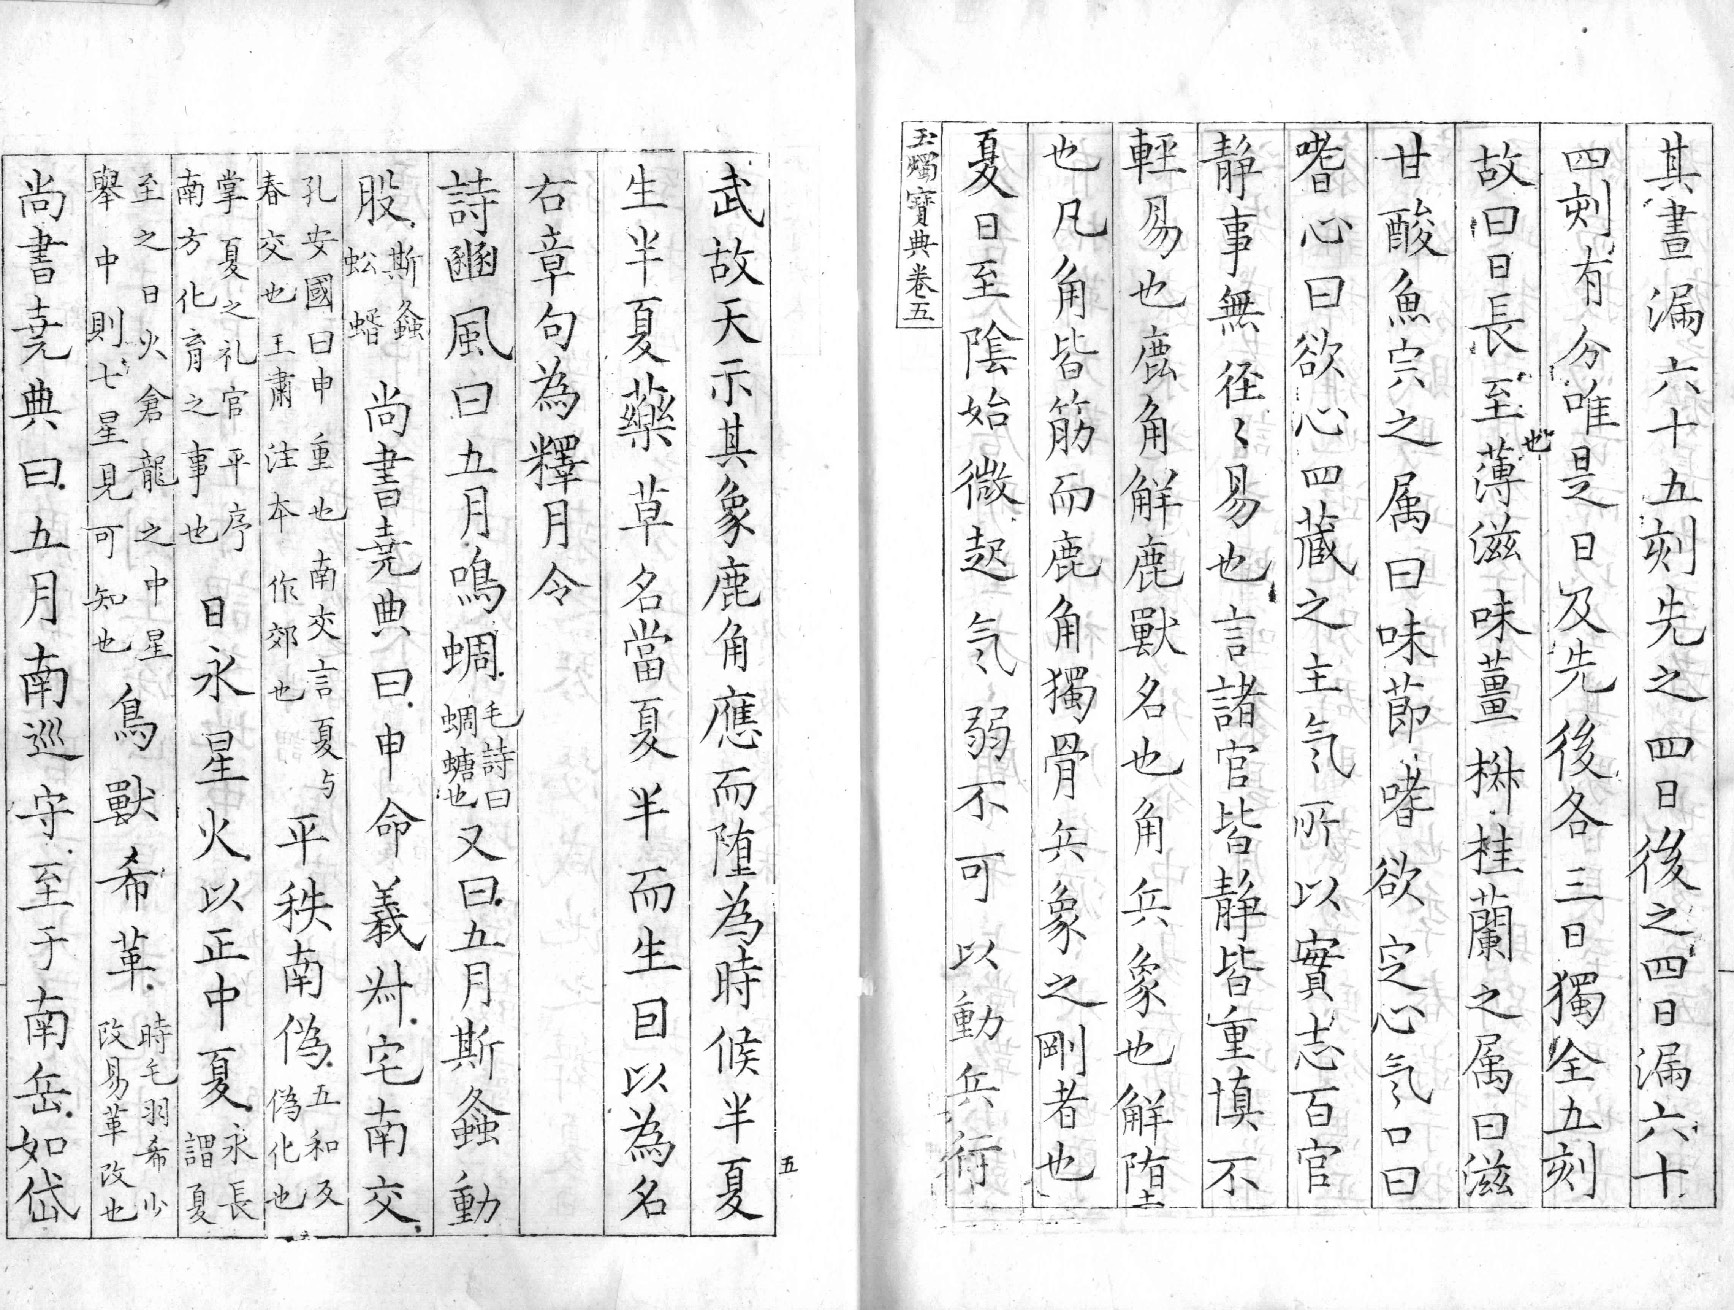 其晝漏六十五刻先之四日後之四日漏六十
四刻有分唯是日及先後各三日獨全五刻
故曰日長至也薄滋味薑椒桂蘭之属曰滋
甘酸魚宍之属曰味節嗜欲定心氣口曰
嗜心曰欲心四蔵之主氣所以實志百官
静事無径〻易也言諸官皆静皆重慎不
輕易也鹿角解鹿獸名也角兵象也解堕
也凡角皆筋而鹿角獨骨兵象之剛者也
夏日至陰始微起氣弱不可以動兵行
玉燭寶典卷五
武故天示其象鹿角應而堕為時候半夏
生半夏藥草名當夏半而生因以為名
右章句為釋月令
詩豳風曰五月鳴蜩毛詩曰蜩螗也又曰五月斯螽動
股斯螽蚣蝑尚書尭典曰申命義叔宅南交
孔安國曰申重也南交言夏与春交也王肅注本作郊也平秩南偽五和反偽化也
掌夏之礼官平序南方化育之事也日永星火以正中夏永長謂夏
至之日火倉龍之中星舉中則七星見可知也鳥獸希革時毛羽希少改易革改也
尚書尭典曰五月南巡守至于南岳如岱
五